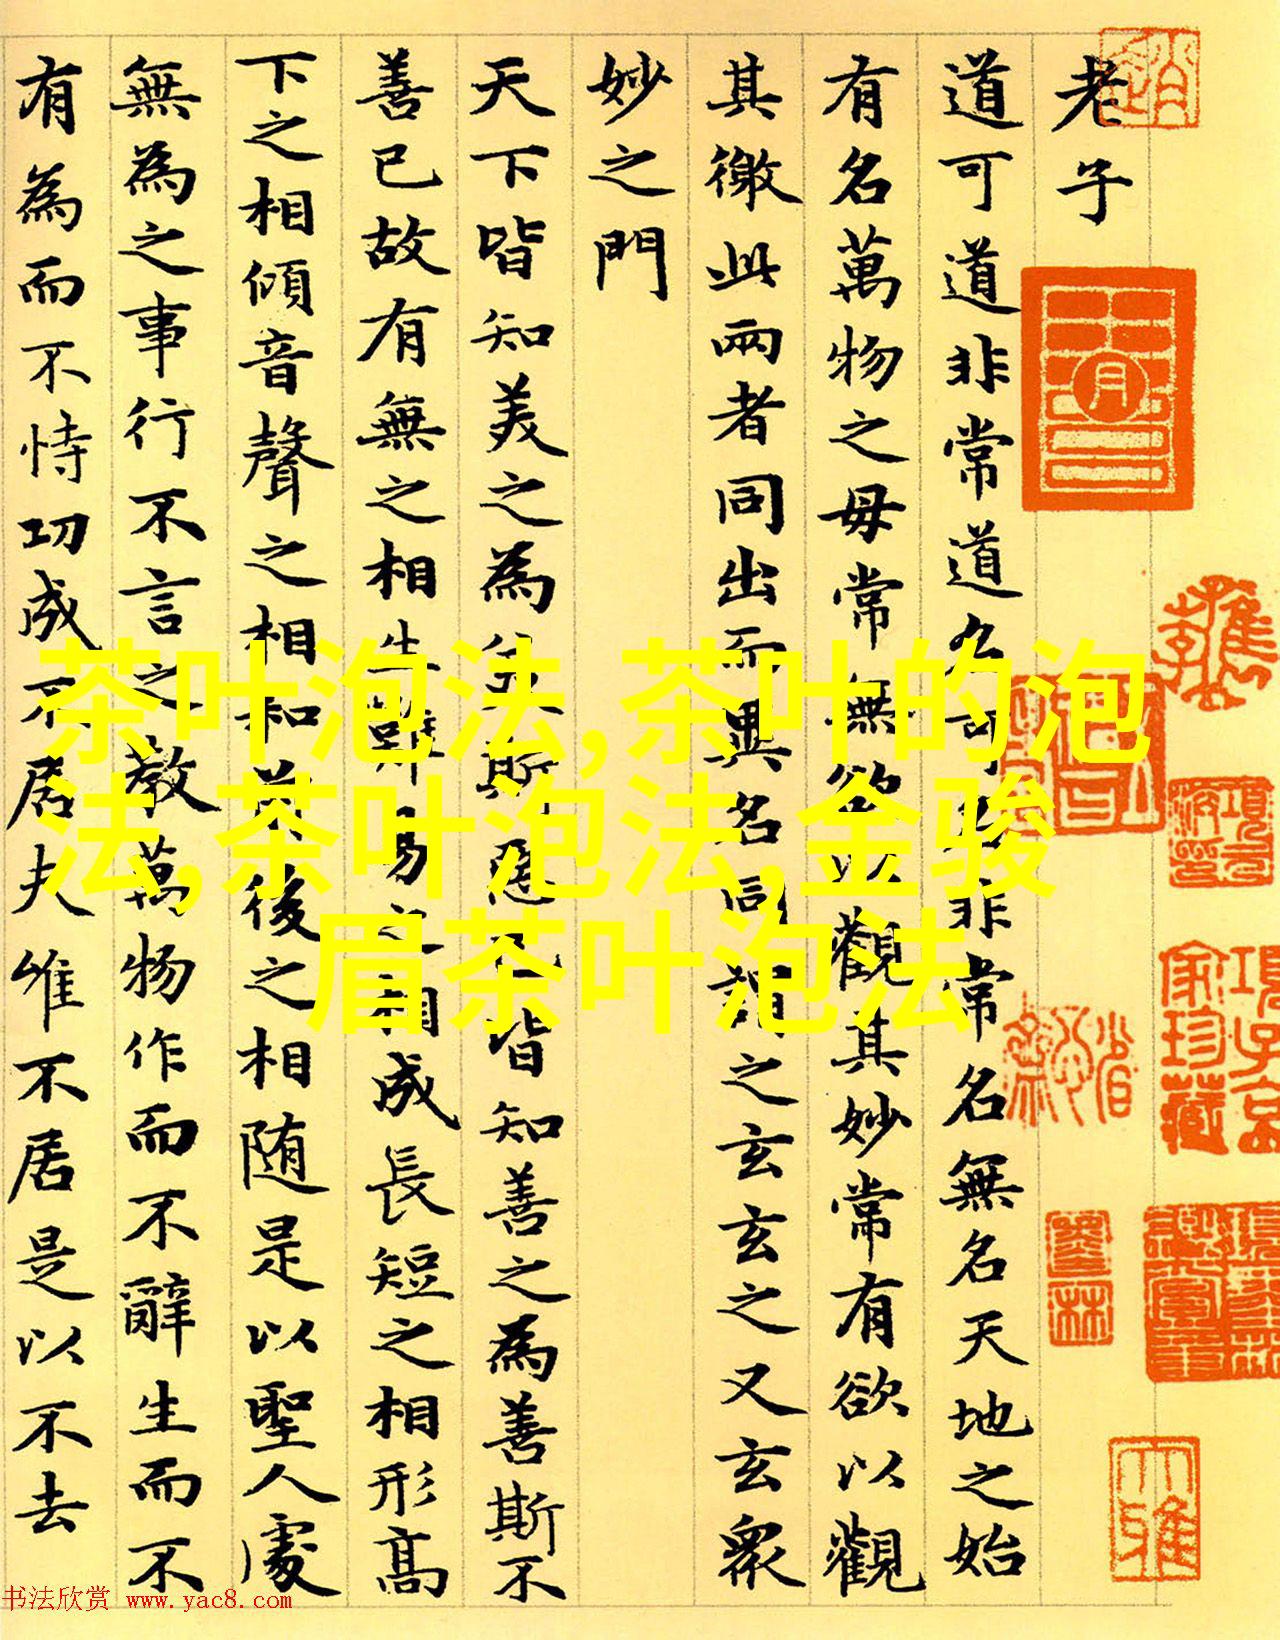 老子
道可道非常道名可名非常名無名天地之始
有名萬物之母常無欲以觀其妙常有欲以觀
其徼此兩者同出而異名同謂之玄玄之又玄衆
妙之門
天下皆知美之為美斯惡已皆知善之為善斯不
善已故有無之相生難易之相成長短之相形髙
下之相傾音聲之相和前後之相随是以聖人處
無為之事行不言之教萬物作而不辭生而不
有為而不恃功成不居夫唯不居是以不去
茶叶泡法,茶叶的泡
法,茶叶泡法,金骏
眉茶叶泡法
书法欣赏 www.yac8.com